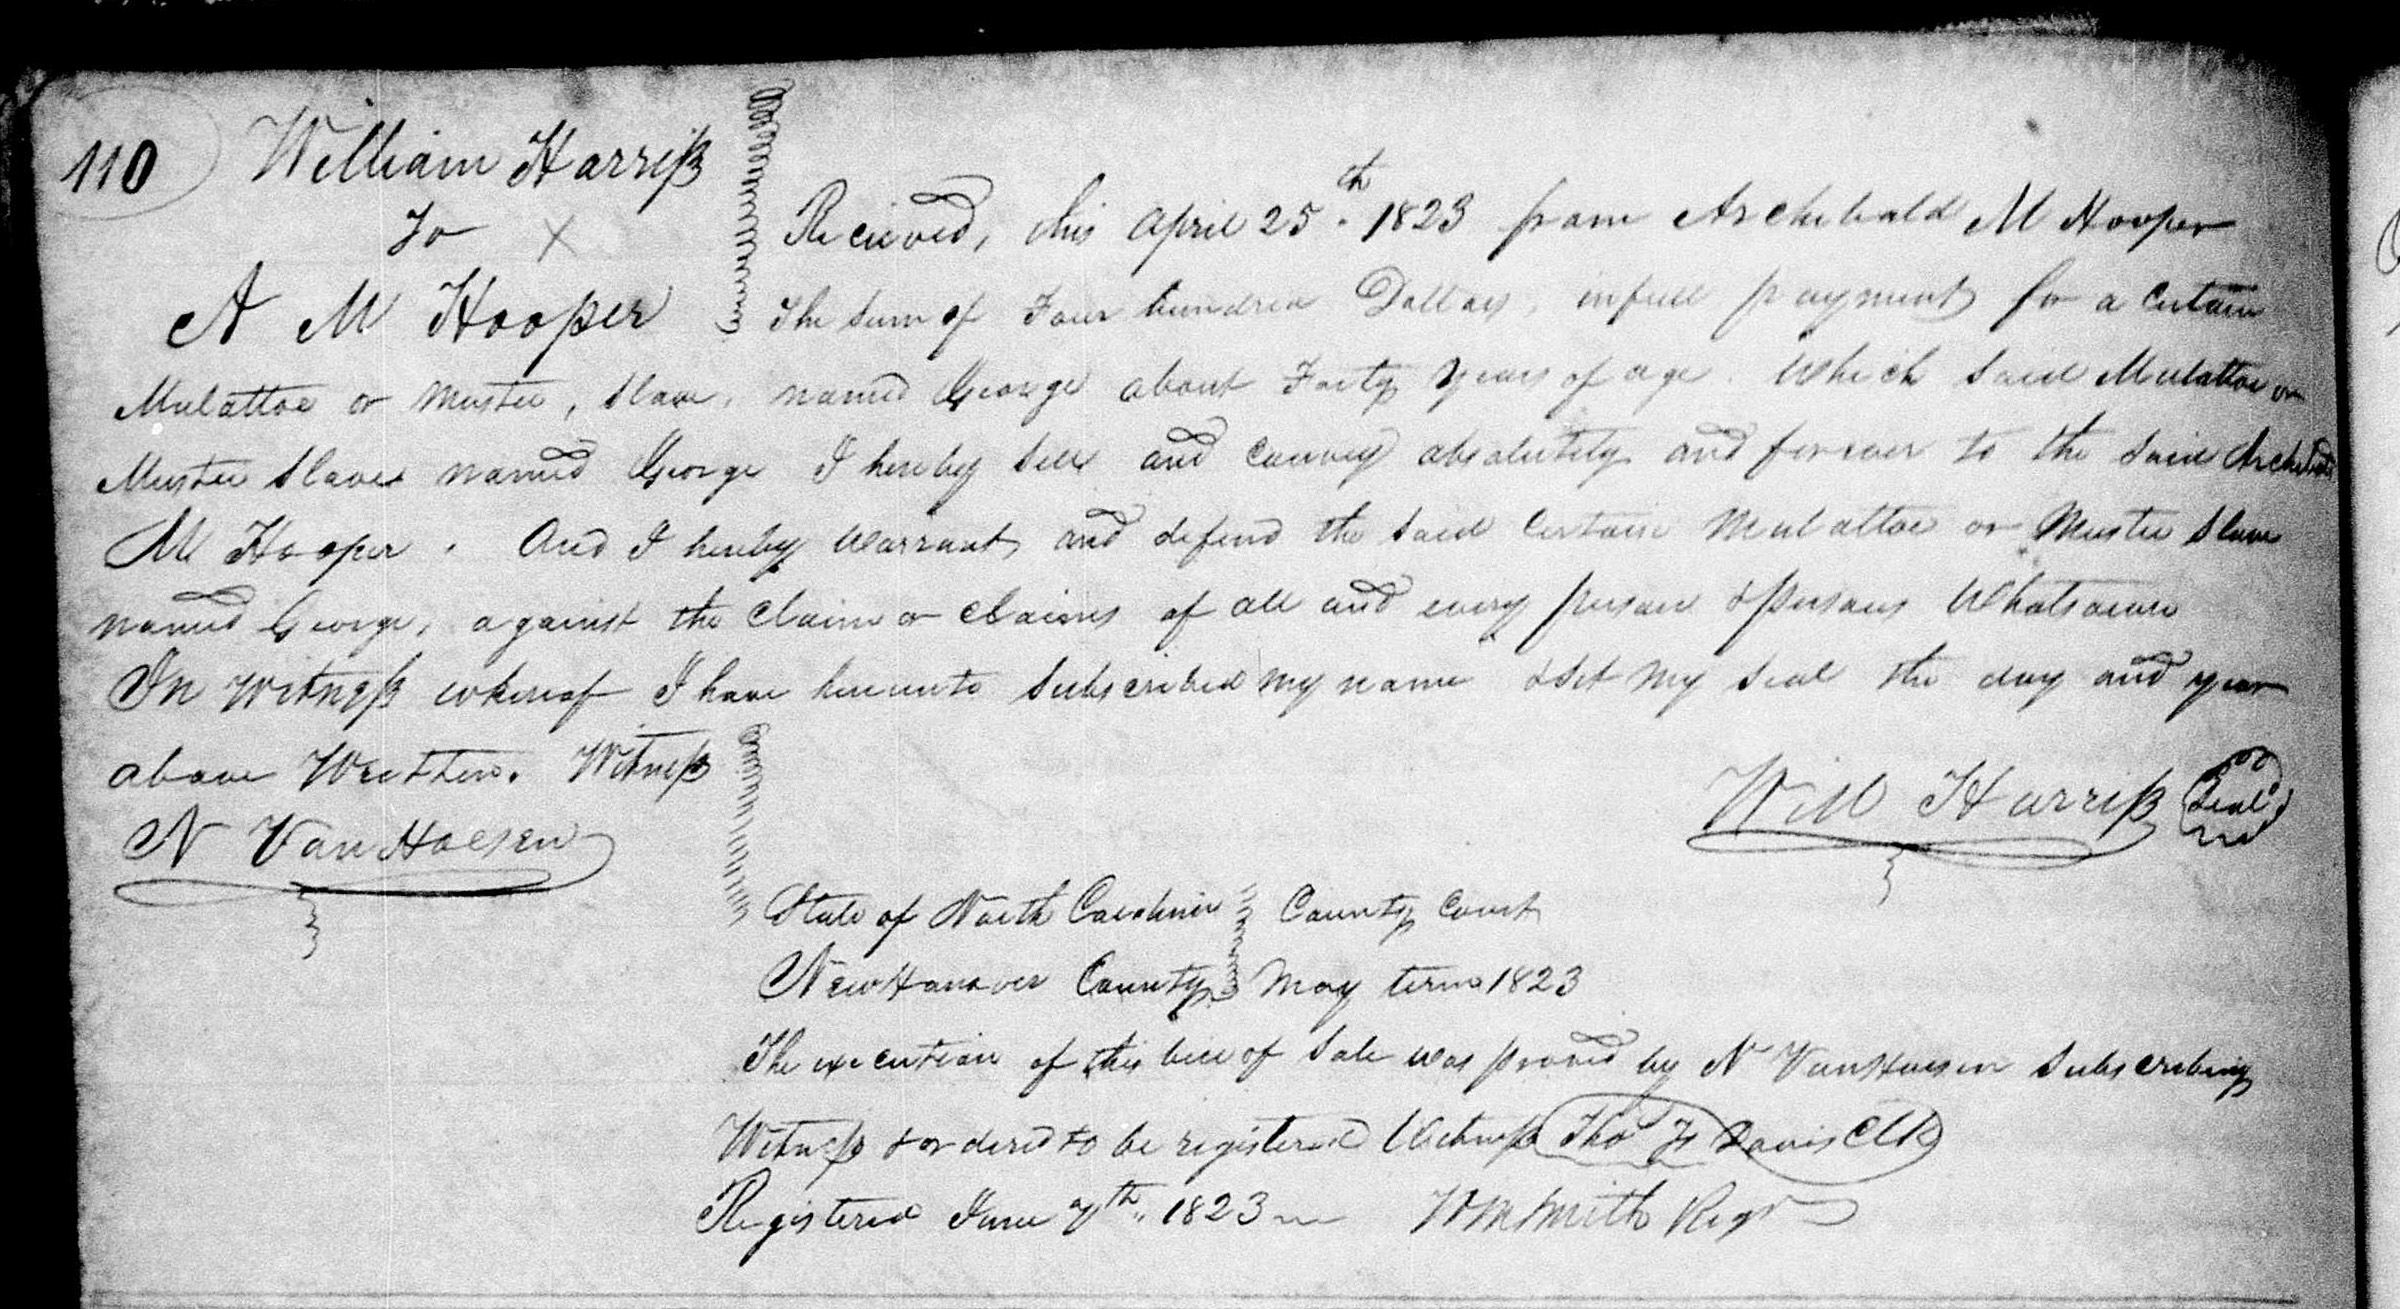 110
William Harriss
To X
A M Hooper
Recieved, this April 25th 1823 from Archibald M Hooper
The sum of Four hundred Dollars, in full payment for a certain
Mulattoe or Mustee, Slave, named George about Forty years of age. Which said Mulattoe or
Mustee Slave named George I hereby sell and convey absolutely and forever to the said Archibald
M Hooper. And I hereby warrant and defend the said certain Mulattoe or Mustee Slave
named George, against the claim or claims of all and every person & persons Whatsoever
In Witness whereof I have hereunto subscribed my name & set my seal the day and year
above Written. Witness
N VanHoesen
Will Harriss Seal
State of North Carolina County Court
New Hanover County May term 1823
The execution of this bill of sale was proved by N VanHoesen subscribing
Witness & ordered to be registered Witness Tho F Davis Clk
Registered June 7th 1823 Wm Smith Regr